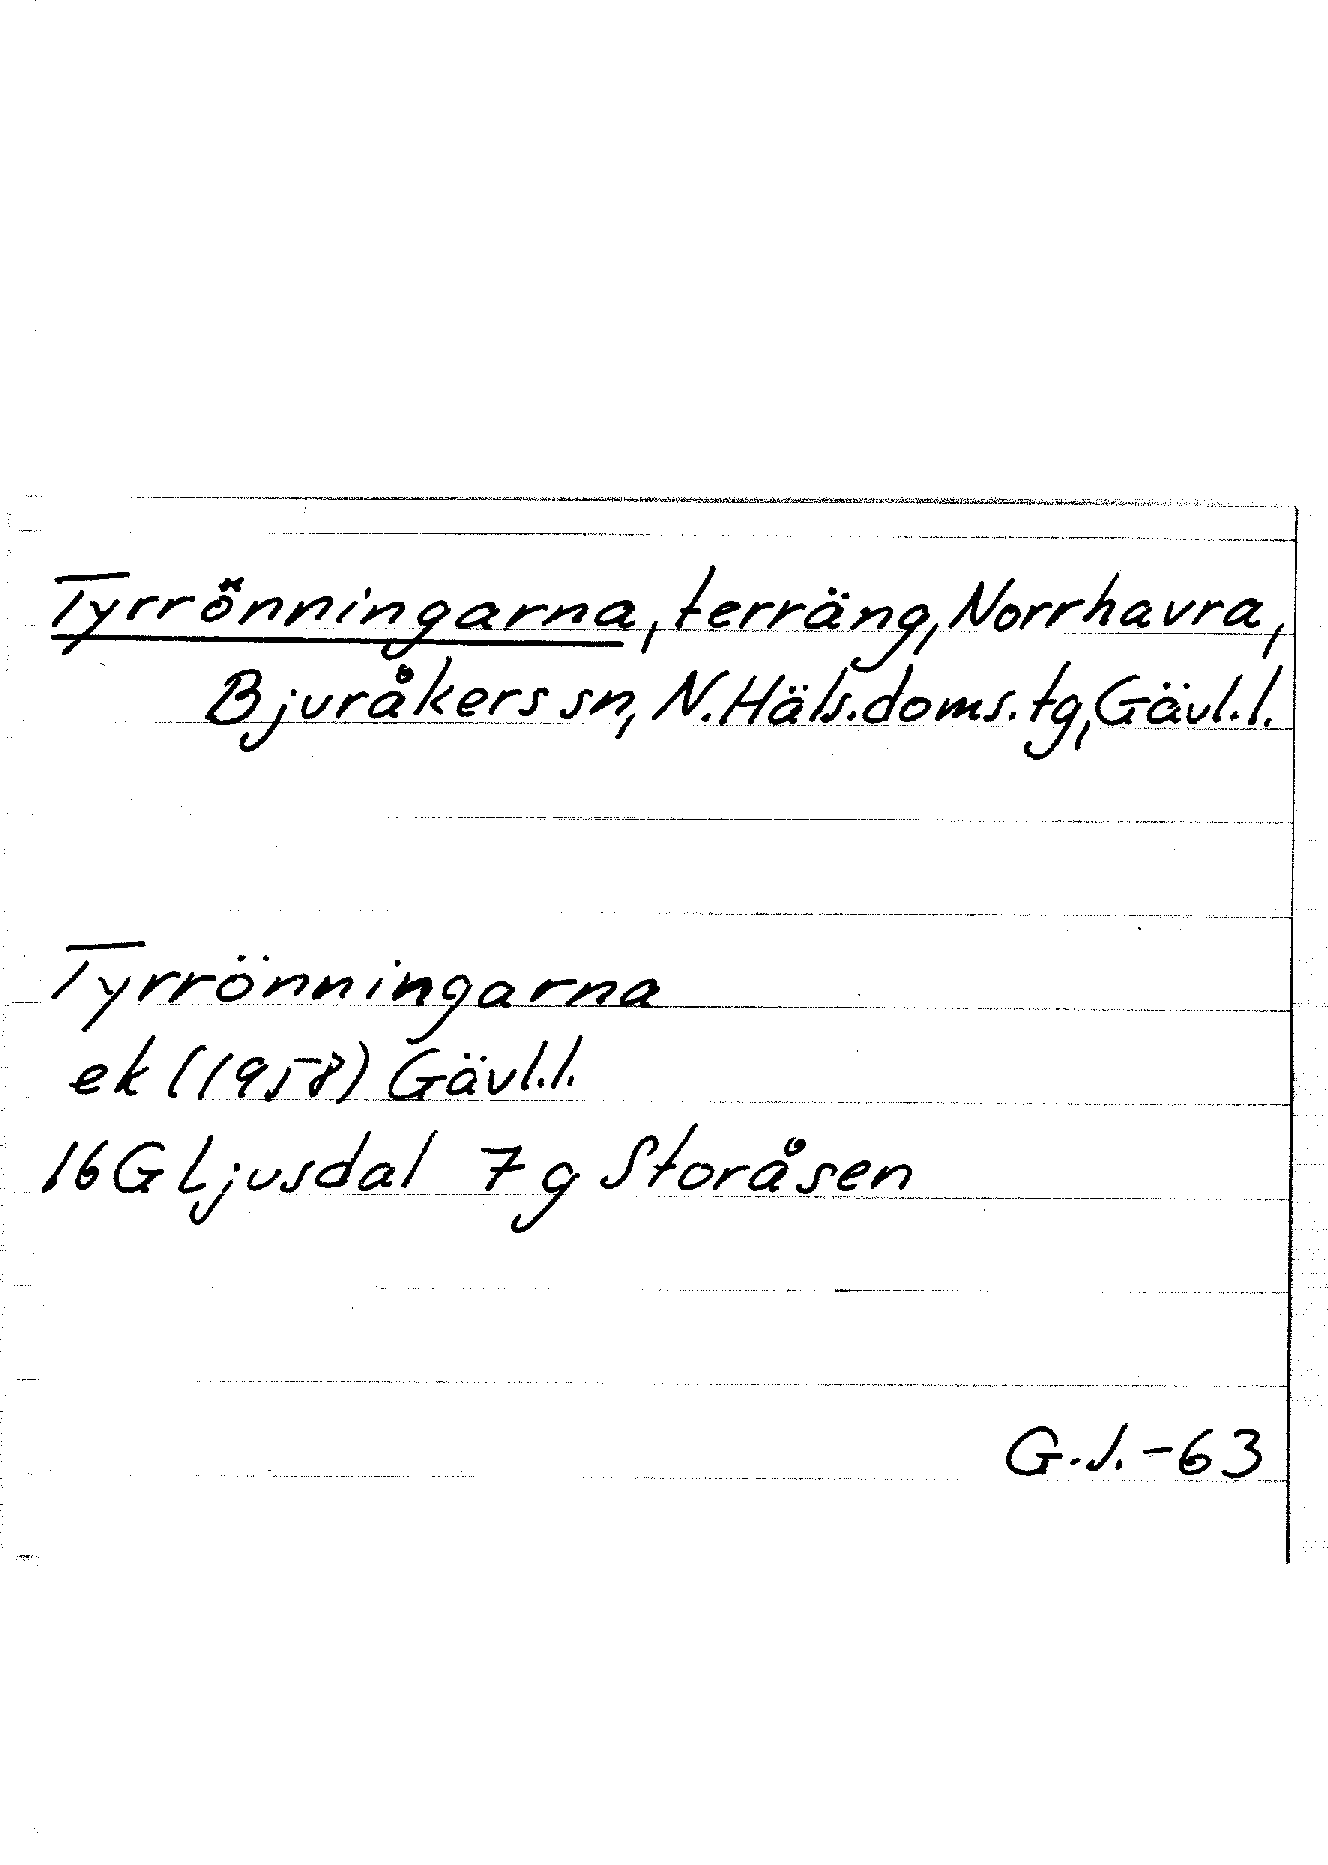 Tyrrönningarna, terräng, Norrhavra,
Bjuråkers sn, N. Häls. doms. tg, Gävl. l.
Tyrrönningarna
ek (1958) Gävl. l.
16 G Ljusdal 7 g Storåsen
G.J. -63